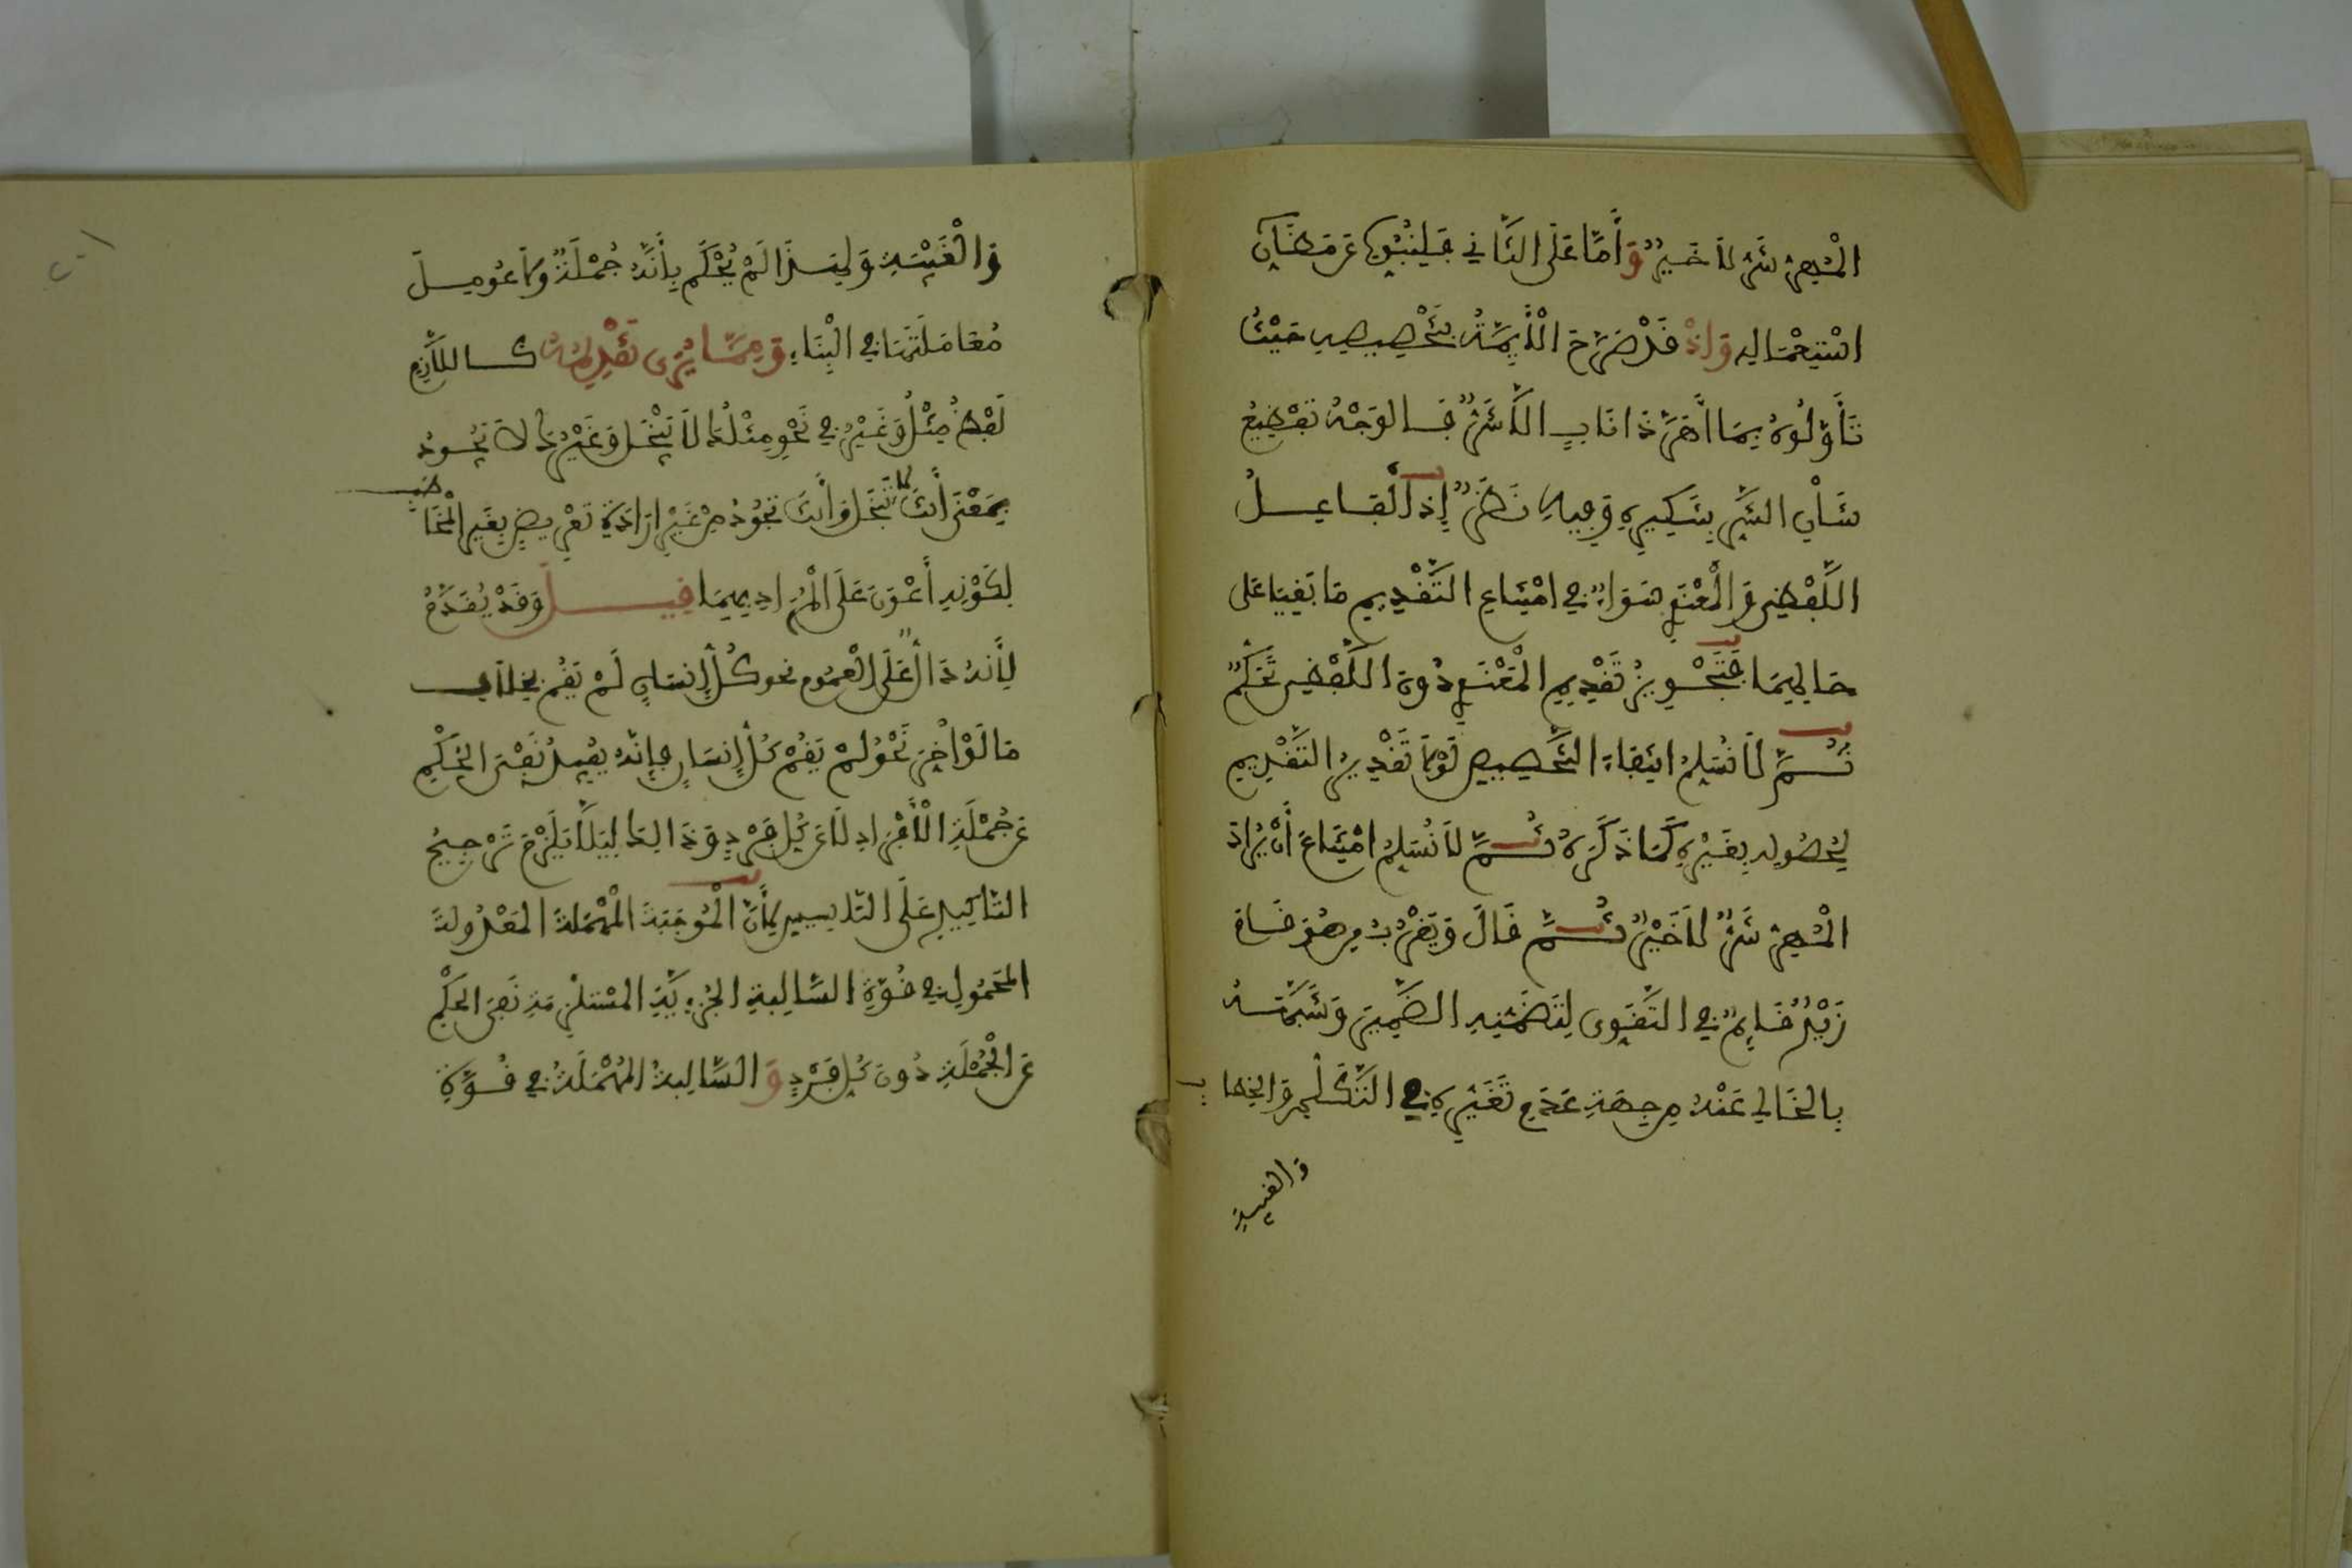 الْمُهِرُّ شَرٌّ لَا خَيْرٌ وَأَمَّا عَلَى الثَّانِي فَلِنُبُوِّهِ عَن مَظَانِّ
اسْتِعْمَالِهِ وَإِذْ قَدْ صَرَّحَ الْأَئِمَّةُ بِتَخْصِيصِهِ حَيْثُ
تَأَوَّلُوهُ بِمَا أَهَرَّ ذَا نَابٍ إِلَّا شَرٌّ فَالْوَجْهُ تَفْظِيعُ
شَأْنِ الشَّرِّ بِتَنْكِيرِهِ وَفِيهِ نَظَرٌ إِذِ الْفَاعِلُ
اللَّفْظِي وَالْمَعْنَوِي سَوَاءٌ فِي امْتِنَاعِ التَّقْدِيمِ مَا بَقِيَا عَلَى
حَالِهِمَا فَتَجْوِيزُ تَقْدِيمِ الْمَعْنَوِي دُونَ اللَّفْظِي تَحَكُّمٌ
ثُمَّ لَا نُسَلِّمُ انْتِفَاءَ التَّخْصِيصِ لَوْلَا تَقْدِيرُ التَّقْدِيمِ
لِحُصُولِهِ بِغَيْرِهِ كَمَا ذَكَرَهُ ثُمَّ لَا نُسَلِّمُ امْتِنَاعَ أَنْ يُرَادَ
الْمُهِرُّ شَرٌّ لَا خَيْرٌ ثُمَّ قَالَ وَيَقْرُبُ مِن هُوَ قَامَ
زَيْدٌ قَائِمٌ فِي التَّقَوِّي لِتَضَمُّنِهِ الضَّمِيرَ وَشَبَّهَهُ
بِالْخَالِي عَنْهُ مِن جِهَةِ عَدَمِ تَغَيُّرِهِ فِي التَّكَلُّمِ وَالْخِطَابِ
وَالْغَيْبَةِ
وَالْغَيْبَةِ وَلِهَذَا لَمْ يُحْكَم بِأَنَّهُ جُمْلَةٌ وَلَا عُومِلَ
مُعَامَلَتَهَا فِي الْبِنَاءِ وَمِمَّا يُرَى تَقْدِيمُهُ كَاللَّازِمِ
لَفْظُ مِثْلُ وَغَيْرُ فِي نَحْوِ مِثْلُكَ لَا يَبْخَلُ وَغَيْرُكَ لَا يَجُودُ
بِمَعْنَى أَنْتَ لَا تَبْخَلُ وَأَنْتَ تَجُودُ مِنْ غَيْرِ إِرَادَةِ تَعْرِيضٍ بِغَيْرِ الْمُخَاطَبِ
لِكَوْنِهِ أَعْوَنَ عَلَى الْمُرَادِ بِهِمَا قِيلَ وَقَدْ يُقَدَّمُ
لِأَنَّهُ دَالٌّ عَلَى الْعُمُومِ نحو كُلُّ إِنسَانٍ لَمْ يَقُمْ بِخِلَافِ
مَا لَوْ أُخِّرَ نَحْوُ لَمْ يَقُمْ كُلُّ إِنسَانٍ فَإِنَّهُ يُفِيدُ نَفْيَ الْحُكْمِ
عَن جُمْلَةِ الْأَفْرَادِ لَا عَن كُلِّ فَرْدٍ وَذَالِكَ لِيَلَّا يَلْزَمَ تَرْجِيحُ
التَّاكِيدِ عَلَى التَّاسِيسِ لِأَنَّ الْمُوجَبَةَ الْمُهْمَلَةَ الْمَعْدُولَةَ
الْمَحْمُولِ فِي قُوَّةِ السَّالِبَةِ الْجُزْئِيَّةِ الْمُسْتَلْزِمَةِ نَفْيَ الْحُكْمِ
عَنِ الْجُمْلَةِ دُونَ كُلِّ فَرْدٍ وَالسَّالِبَةُ الْمُهْمَلَةُ فِي قُوَّةِ